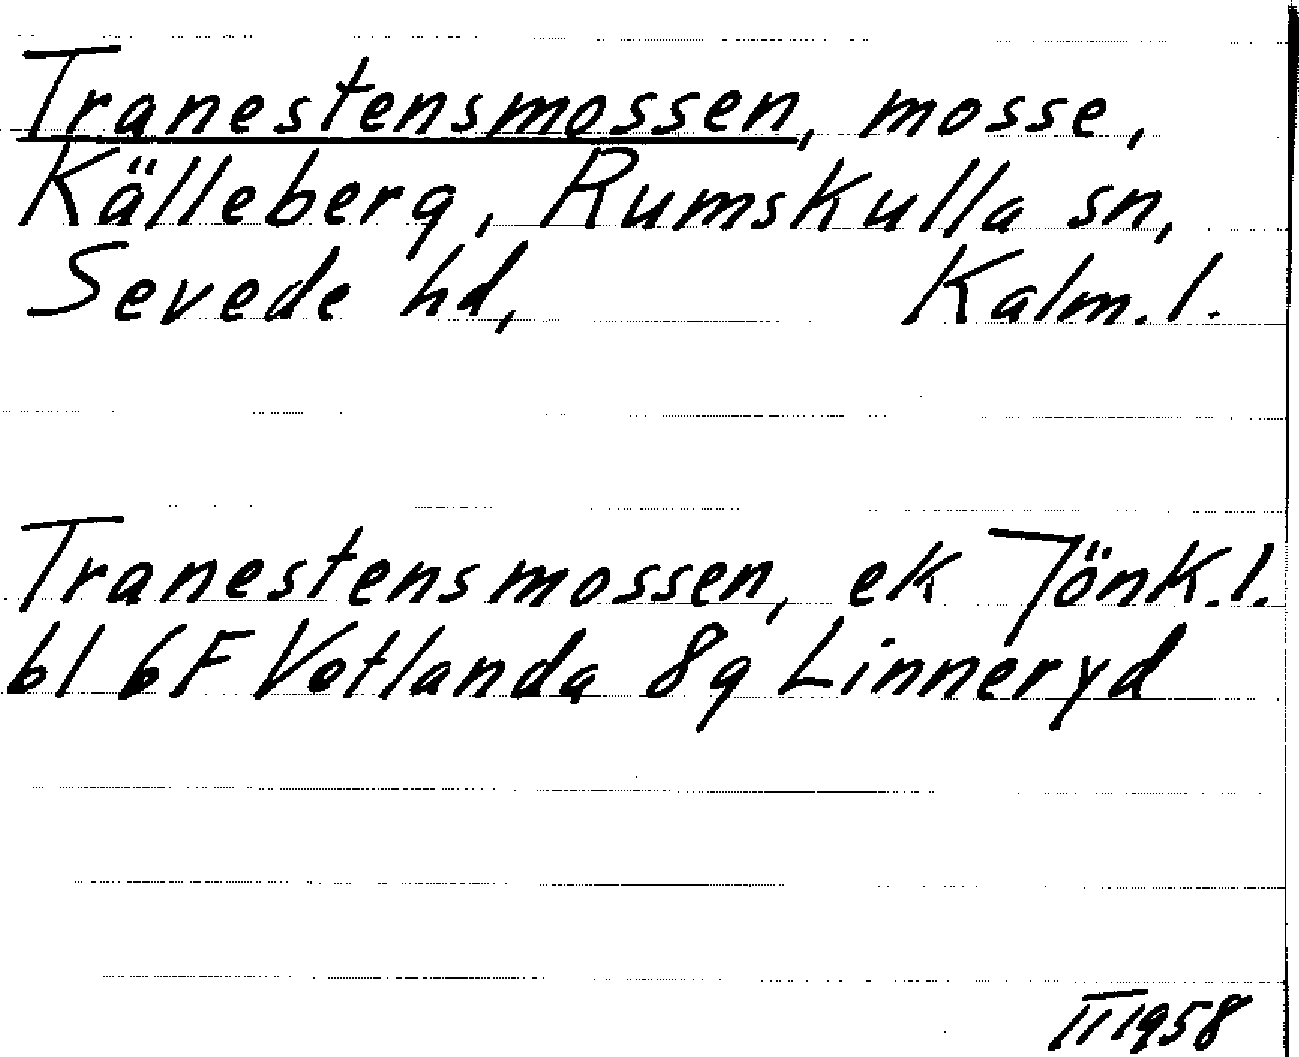 Tranestensmossen, mosse,
Källeberg, Rumskulla sn,
Sevede hd, Kalm. l.
Tranestensmossen, ek Jönk. l.
bl 6F Vetlanda 8g Linneryd
II 1958